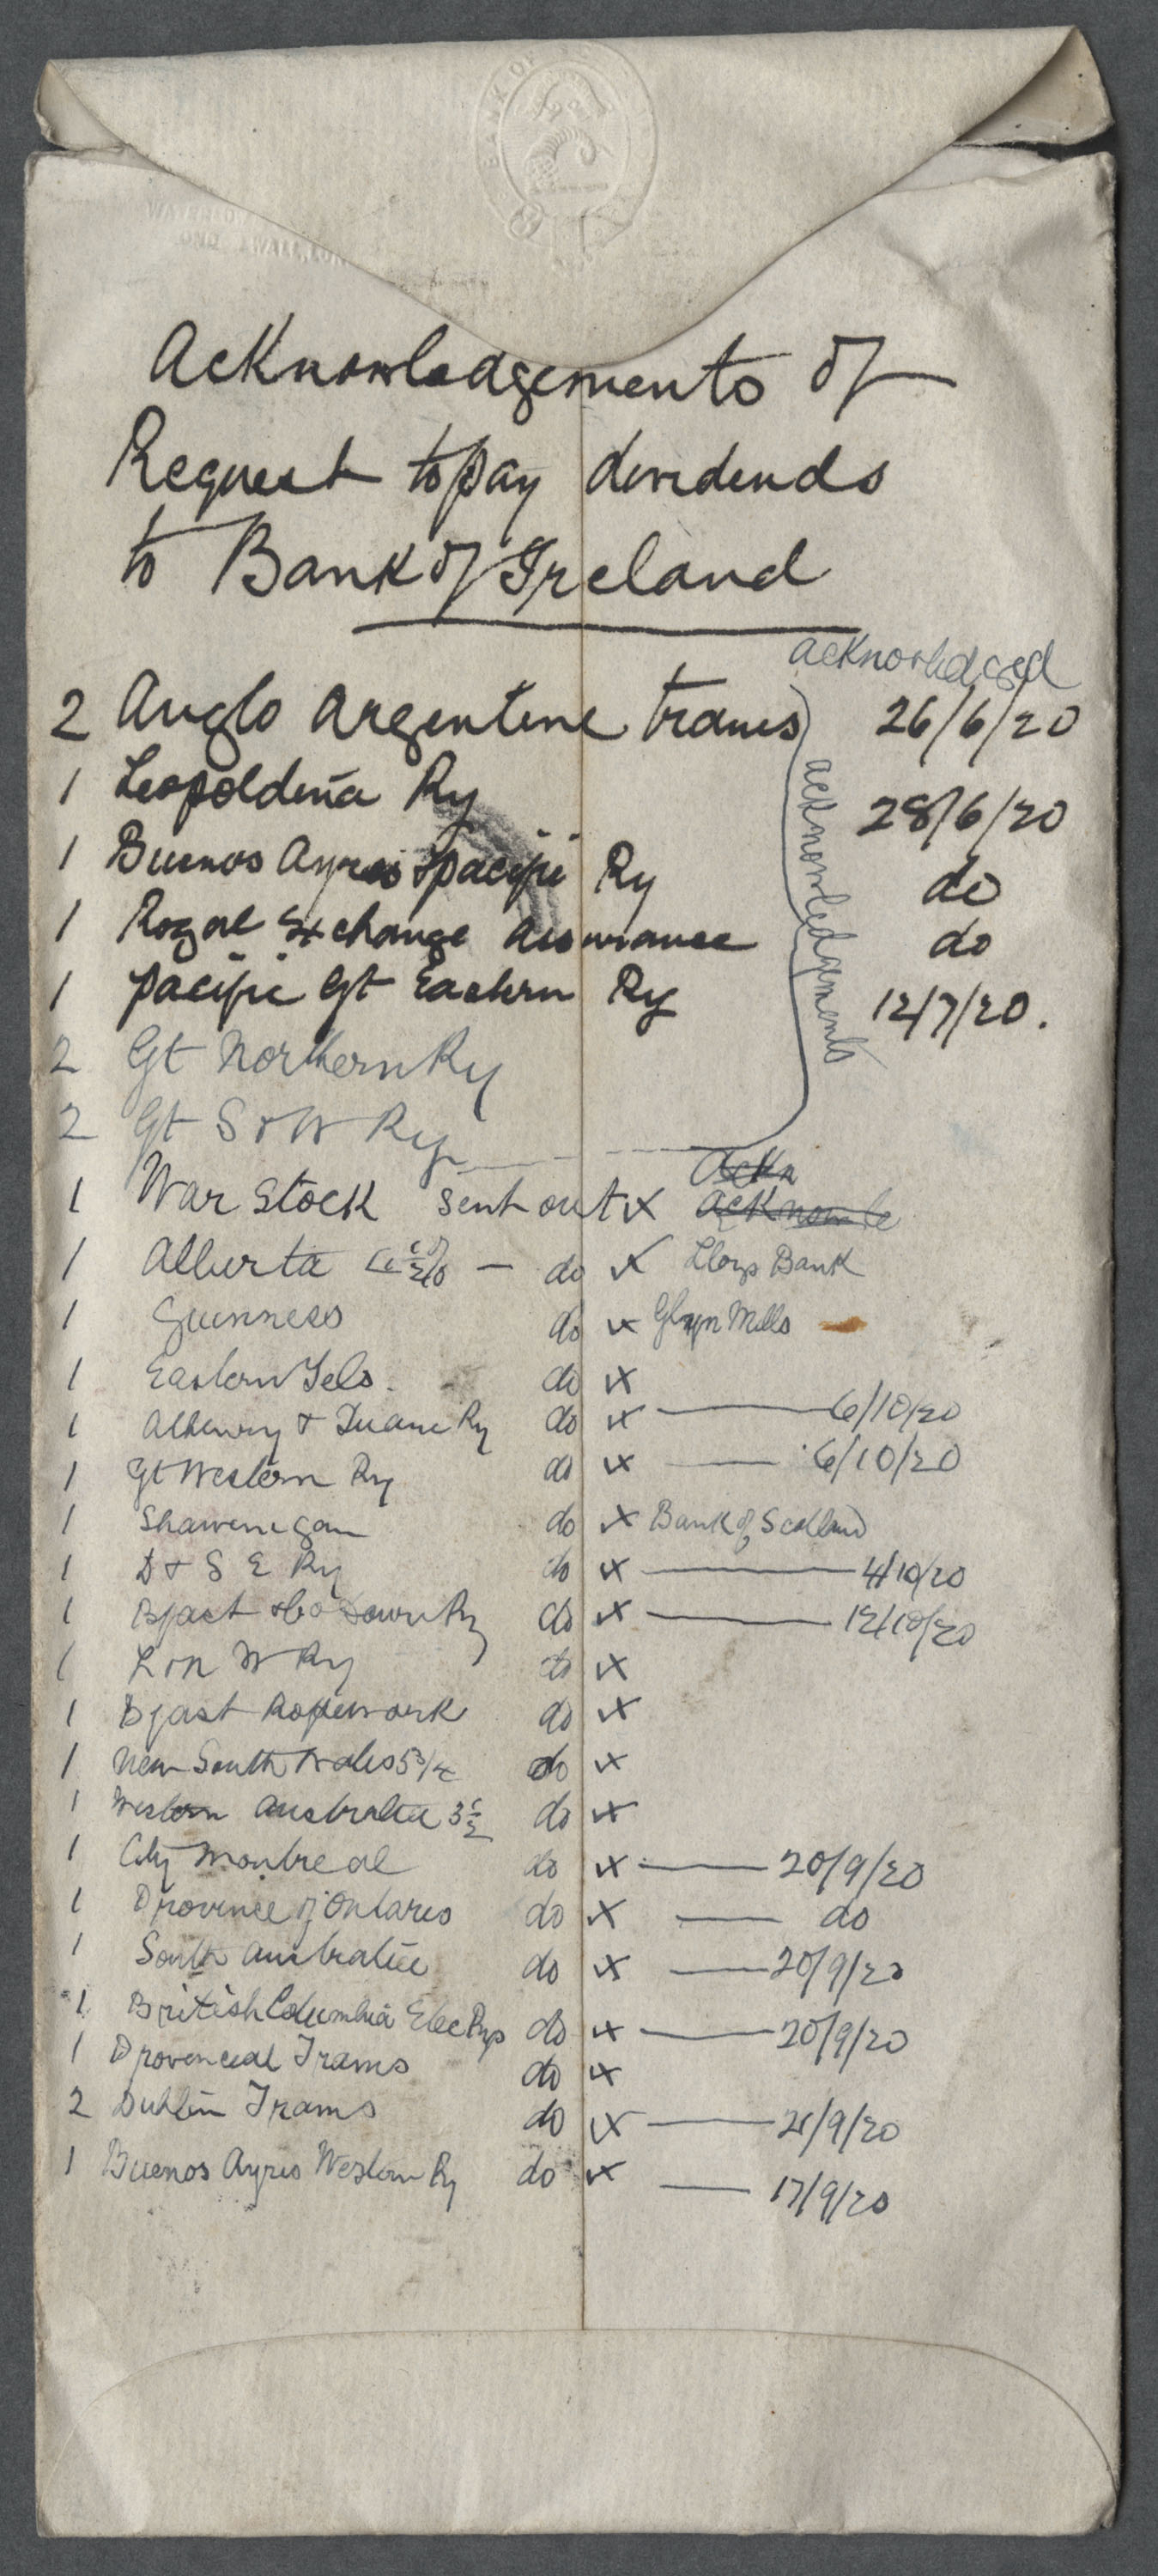 BANK OF
WATERLO
OND WALL, LON
Acknowledgements of
Request to pay dividends
to Bank of Ireland
acknowledged
2 Anglo Argentine trams 26/6/20
1 Leopoldina Ry 28/6/20
1 Buenos Ayres & pacific Ry do
1 Royal Exchange Assurance do
1 pacific Gt Eastern Ry 12/7/20.
acknowledgments
2 Gt Northern Ry
2 Gt S & W Ry
Ackn
1 War Stock sent out x Acknowle
1 Alberta - do x Lloys Bank
1 Guinness do x Glyn Mills
1 Eastern Tels. do x
1 Athenry & Tuam Ry do x 6/10/20
1 Gt Western Ry do x 6/10/20
1 Shawenigan do x Bank of Scotland
1 D & S E Ry do x 4/10/20
1 Bfast & Co Down Ry do x 12/10/20
1 L & N W Ry do x
1 Bfast Ropework do x
1 New South Wales 5 3/4 do x
1 Western Australia 3 1/2 do x
1 City Montreal do x 20/9/20
1 Province of Ontario do x do
1 South Australia do x 20/9/20
1 British Columbia Elec Rys do x 20/9/20
1 Provincial Trams do x
2 Dublin Trams do x 21/9/20
1 Buenos Ayres Western Ry do x 17/9/20